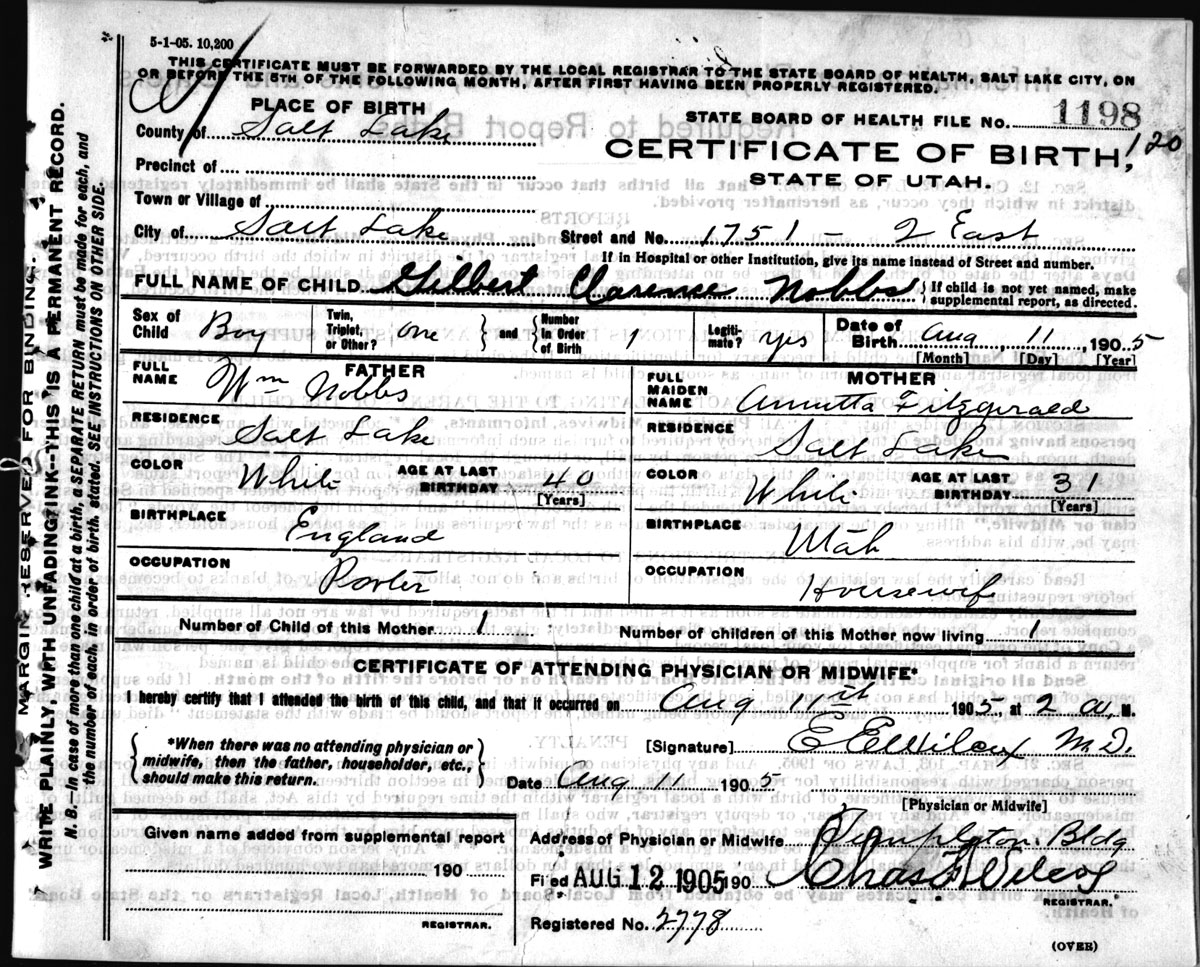 5-1-05. 10,200
THIS CERTIFICATE MUST BE FORWARDED BY THE LOCAL REGISTRAR TO THE STATE BOARD OF HEALTH, SALT LAKE CITY, ON
OR BEFORE THE 5TH OF THE FOLLOWING MONTH, AFTER FIRST HAVING BEEN PROPERLY REGISTERED.
PLACE OF BIRTH
STATE BOARD OF HEALTH FILE NO. 1198
120
County of Salt Lake
CERTIFICATE OF BIRTH,
Precinct of
STATE OF UTAH.
Town or Village of
City of Salt Lake Street and No. 1751 - 2 East
If in Hospital or other Institution, give its name instead of Street and number.
FULL NAME OF CHILD Gilbert Clarence Nobbs { If child is not yet named, make
supplemental report, as directed.
Sex of Child Boy Twin, Triplet, or Other? one } and { Number in Order of Birth 1 Legiti-mate? yes Date of Birth Aug 11, 1905
[Month] [Day] [Year]
FATHER
FULL NAME Wm Nobbs
RESIDENCE Salt Lake
COLOR White AGE AT LAST BIRTHDAY 40
[Years]
BIRTHPLACE England
OCCUPATION Porter
MOTHER
FULL MAIDEN NAME Annetta Fitzgerald
RESIDENCE Salt Lake
COLOR White AGE AT LAST BIRTHDAY 31
[Years]
BIRTHPLACE Utah
OCCUPATION Housewife
Number of Child of this Mother 1 Number of children of this Mother now living 1
CERTIFICATE OF ATTENDING PHYSICIAN OR MIDWIFE*
I hereby certify that I attended the birth of this child, and that it occurred on Aug 11st 1905 at 2 a, M.
{ *When there was no attending physician or
midwife, then the father, householder, etc.,
should make this return. }
[Signature] E E Wilcox M.D.
Date Aug 11 1905
[Physician or Midwife]
Given name added from supplemental report
190
REGISTRAR.
Address of Physician or Midwife Templeton Bldg
Filed AUG 12 1905 190 Chas F Wilcox
REGISTRAR.
Registered No. 2778
(OVER)
MARGIN RESERVED FOR BINDING.
WRITE PLAINLY, WITH UNFADING INK--THIS IS A PERMANENT RECORD.
N. B. In case of more than one child at a birth, a SEPARATE RETURN must be made for each, and
the number of each, in order of birth, stated. SEE INSTRUCTIONS ON OTHER SIDE.